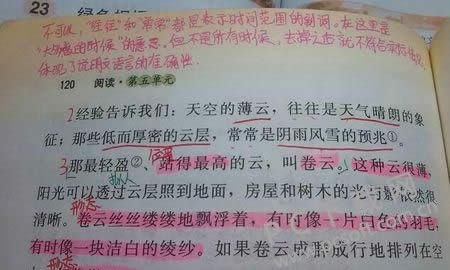 23
不可以,"往往"和"常常"都是表示时间范围的副词。在这里是
"大多数的时候"的意思。但不是所有时候,去掉之后就不符合实际情况
体现了说明文语言的准确性。
120 阅读·第五单元
2经验告诉我们:天空的薄云,往往是天气晴朗的象
征;那些低而厚密的云层,常常是阴雨风雪的预兆①。
3那最轻盈②、站得最高的云,叫卷云。这种云很薄,
拟人
阳光可以透过云层照到地面,房屋和树木的光与影依然很
形态
清晰。卷云丝丝缕缕地飘浮着,有时像一片白色的羽毛,
有时像一块洁白的绫纱。如果卷云成群成行地排列在空
形态